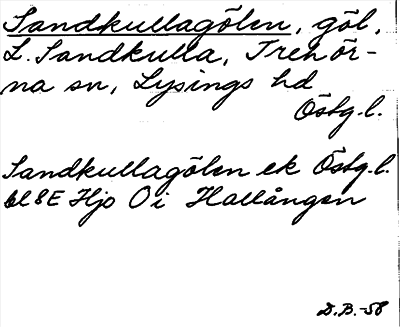 Sandkullagölen, göl,
L. Sandkulla, Trehör-
na sn, Lysings hd
Östg.l.
Sandkullagölen ek Östg.l.
bl 8E Hjo O i Hallången
D.B.-58